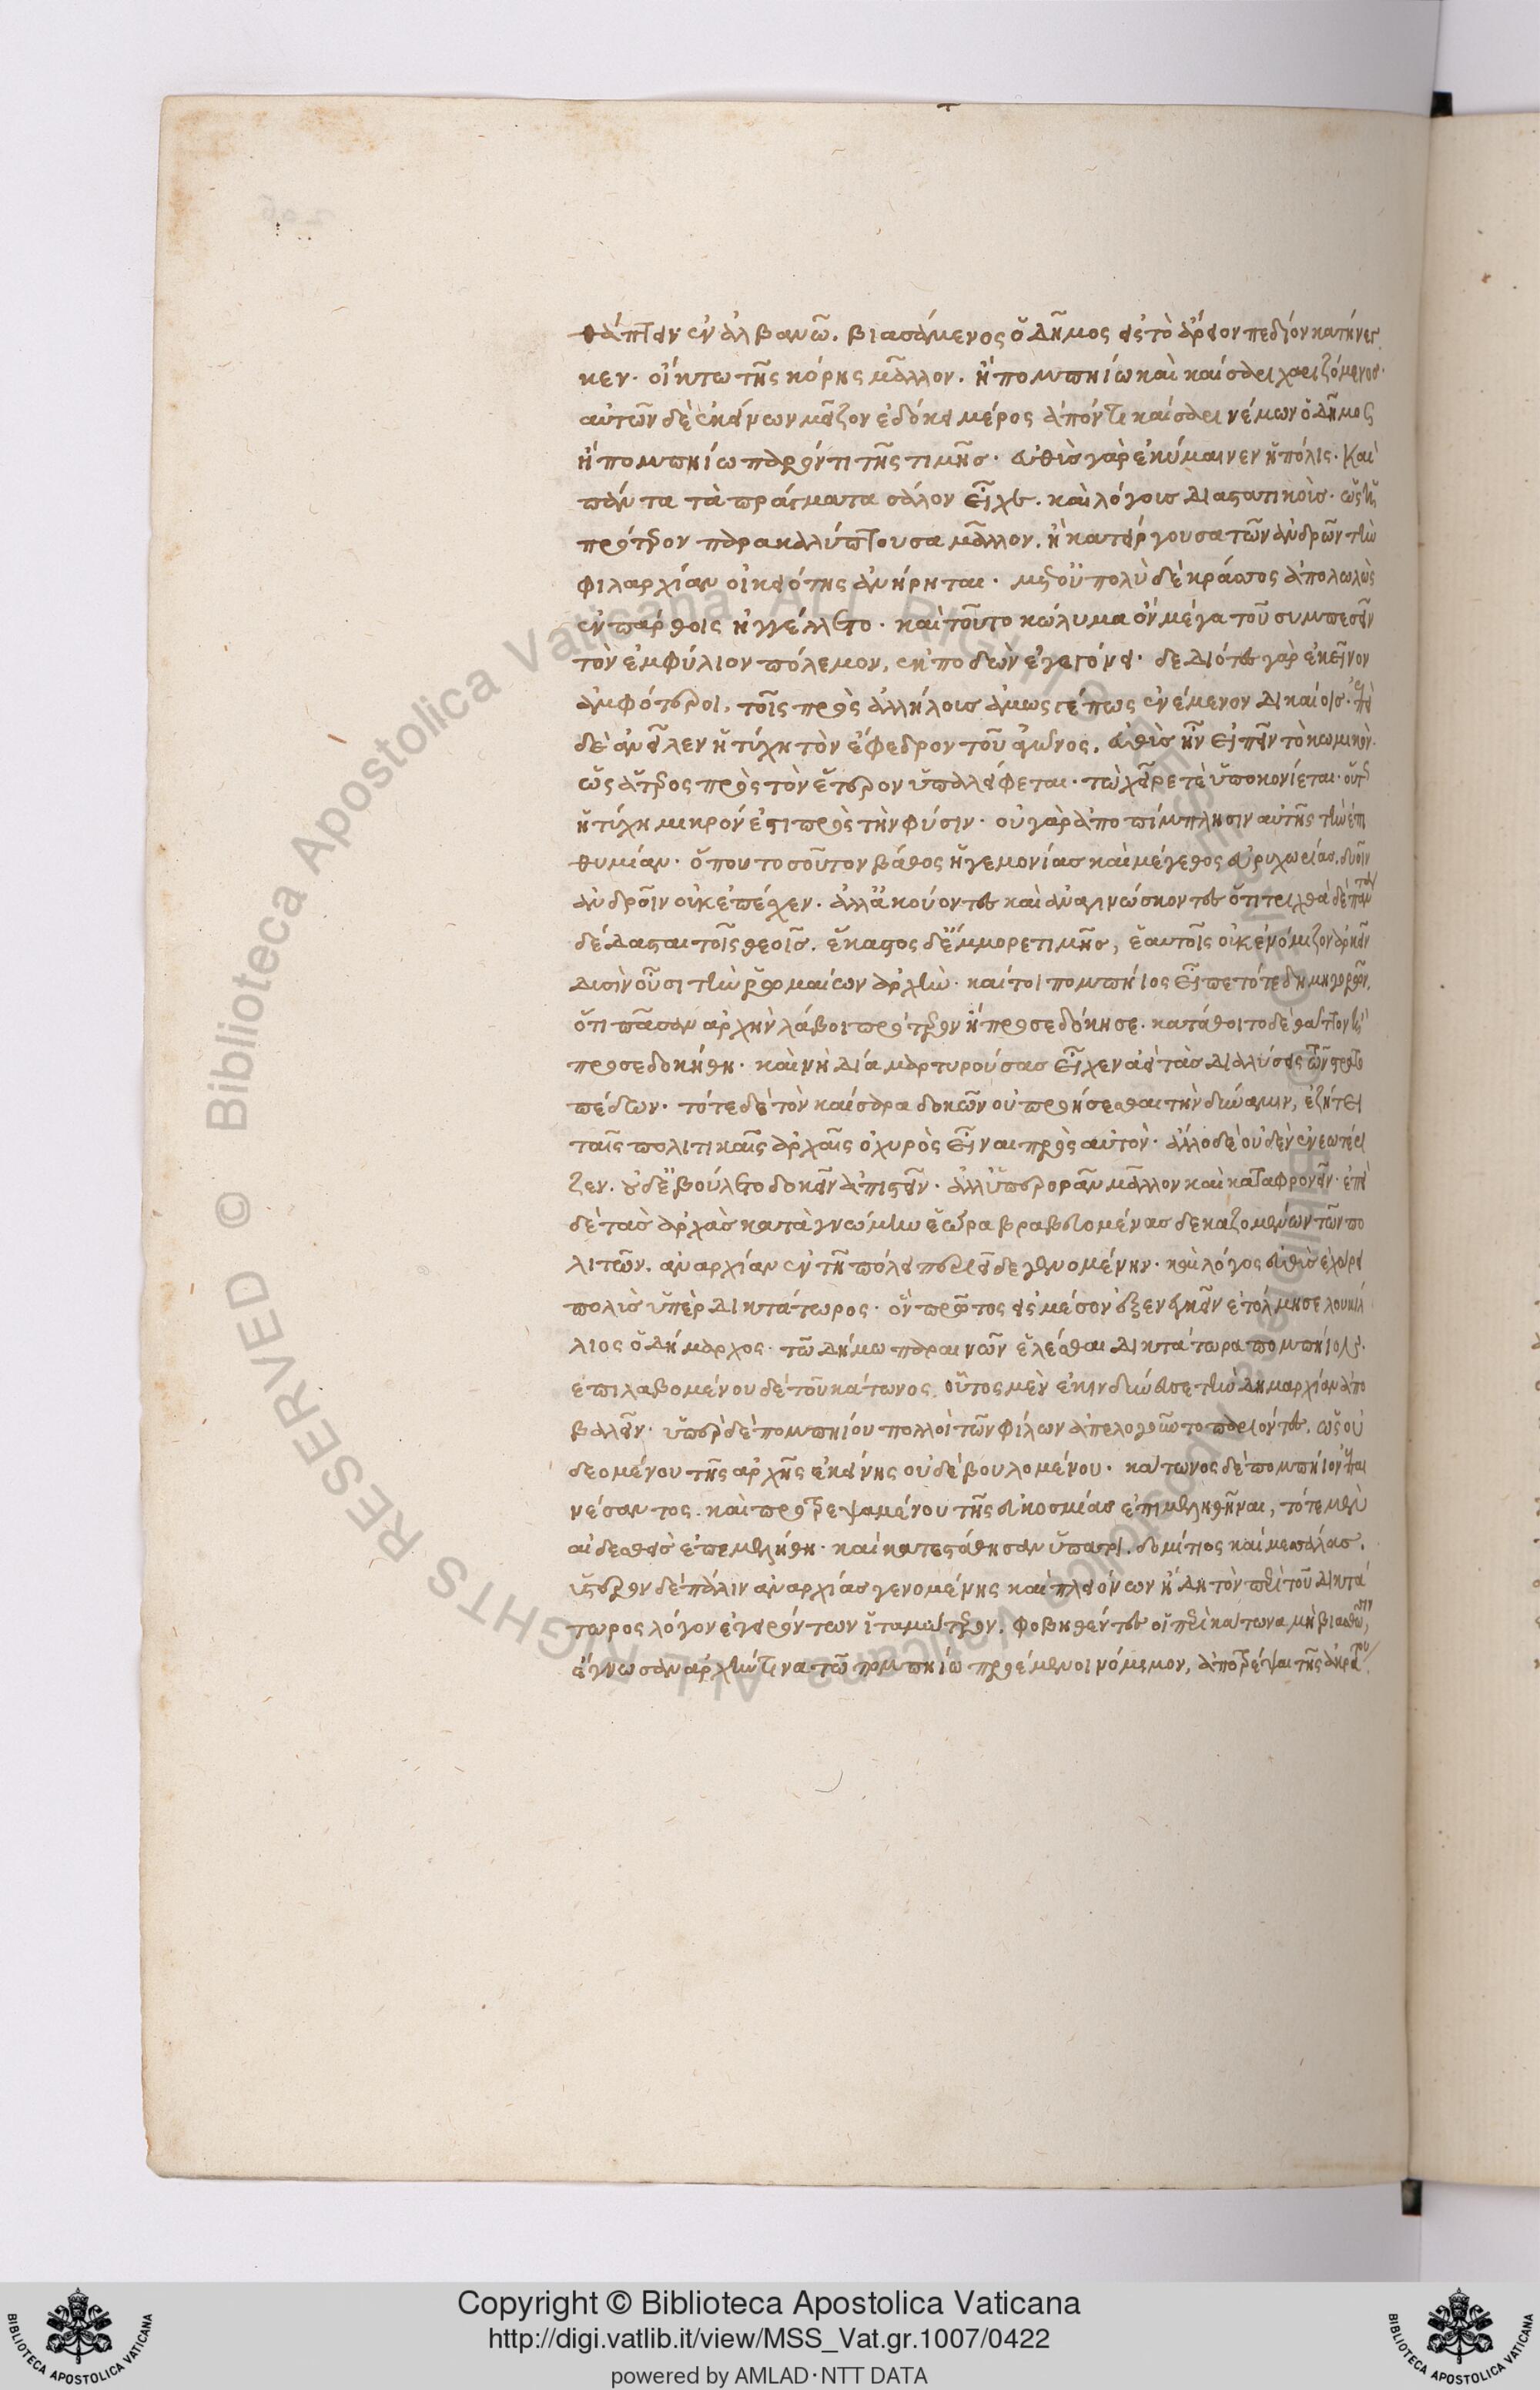 θάπτειν ἐν ἀλβανῶ. βιασάμενος ὁ δῆμος εἰς τὸ ἄρειον πεδίον κατήνεγ
κεν. οἴκτω τῆς κόρης μᾶλλον. ἢ πομπηίω καὶ καίσαρι χαριζόμενος.
αὐτῶν δὲ ἐκείνων μεῖζον ἐδόκει μέρος ἀπόντι καίσαρι νέμων ὁ δῆμος
ἢ πομπηίω παρόντι τῆς τιμῆς. εὐθὺς γὰρ ἐκύμαινεν ἡ πόλις. καὶ
πάντα τὰ πράγματα σάλον εἶχε. καὶ λόγοις διαστατικοῖς. ὡς ἡ
πρότερον παρακαλύπτουσα μᾶλλον. ἢ κατείργουσα τῶν ἀνδρῶν τὴν
φιλαρχίαν οἰκειότης ἀνήρηται. μετ' οὐ πολὺ δὲ κράσσος ἀπολωλὼς
ἐν πάρθοις ἠγγέλλετο. καὶ τοῦτο κώλυμα ὂν μέγα τοῦ συμπεσεῖν
τὸν ἐμφύλιον πόλεμον, ἐκποδὼν ἐγεγόνει. δεδιότες γὰρ ἐκεῖνον
ἀμφότεροι, τοῖς πρὸς ἀλλήλοις ἁμωσγέπως ἐνέμενον δικαίοις. ἐπεὶ
δὲ ἀνεῖλεν ἡ τύχη τὸν ἔφεδρον τοῦ ἀγῶνος. εὐθὺς ἦν εἰπεῖν τὸ κωμικόν.
ὡς ἅτερος πρὸς τὸν ἕτερον ὑπαλείφεται. τὼ χεῖρέ τε ὑποκονίεται. οὕτως
ἡ τύχη μικρόν ἐστι πρὸς τὴν φύσιν. οὐ γὰρ ἀποπίμπλησιν αὐτῆς τὴν ἐπι
θυμίαν. ὅπου τοσοῦτον βάθος ἡγεμονίας καὶ μέγεθος εὐρυχωρίας. δυοῖν
ἀνδροῖν οὐκ ἐπέσχεν. ἀλλ' ἀκούοντες καὶ ἀναγινώσκοντες ὅτι τριχθὰ δὲ πάντα
δέδασται τοῖς θεοῖς. ἕκαστος δ' ἔμμορε τιμῆς, ἑαυτοῖς οὐκ ἐνόμιζον ἀρκεῖν
δυσὶν οὖσι τὴν ῥωμαίων ἀρχήν. καίτοι πομπήιος εἶπέ ποτε δημηγορῶν.
ὅτι πᾶσαν ἀρχὴν λάβοι πρότερον ἢ προσεδόκησε. κατάθοιτο δὲ θᾶττον ἢ
προσεδοκήθη. καὶ νὴ δία μαρτυρούσας εἶχεν ἀεὶ τὰς διαλύσεις τῶν στρατο
πέδων. τότε δὲ τὸν καίσαρα δοκῶν οὐ προήσεσθαι τὴν δύναμιν, ἐζήτει
ταῖς πολιτικαῖς ἀρχαῖς ὀχυρὸς εἶναι πρὸς αὐτόν. ἄλλο δὲ οὐδὲν ἐνεωτέρι
ζεν. οὐδ' ἐβούλετο δοκεῖν ἀπιστεῖν. ἀλλ' ὑπερορᾶν μᾶλλον καὶ καταφρονεῖν. ἐπεὶ
δὲ τὰς ἀρχὰς κατὰ γνώμην ἑώρα βραβευομένας δεκαζομένων τῶν πο
λιτῶν. ἀναρχίαν ἐν τῆ πόλει περιεῖδε γενομένην. καὶ λόγος εὐθὺς ἐχώρει
πολὺς ὑπὲρ δικτάτωρος. ὃν πρῶτος εἰς μέσον ἐξενεγκεῖν ἐτόλμησε λουκίλ
λιος ὁ δήμαρχος. τῶ δήμω παραινῶν ἑλέσθαι δικτάτωρα πομπήιον.
ἐπιλαβομένου δὲ τοῦ κάτωνος. οὗτος μὲν ἐκινδύνευσε τὴν δημαρχίαν ἀπο
βαλεῖν. ὑπὲρ δὲ πομπηίου πολλοὶ τῶν φίλων ἀπελογοῦντο παριόντες. ὡς οὐ
δεομένου τῆς ἀρχῆς ἐκείνης οὐδὲ βουλομένου. κάτωνος δὲ πομπήιον ἐπαι
νέσαντος. καὶ προτρεψαμένου τῆς εὐκοσμίας ἐπιμεληθῆναι, τότε μὲν
αἰδεσθεὶς ἐπεμελήθη. καὶ κατεστάθησαν ὕπατοι. δομίτιος καὶ μεσσάλας.
ὕστερον δὲ πάλιν ἀναρχίας γενομένης καὶ πλειόνων ἤδη τὸν περὶ τοῦ δικτά
τωρος λόγον ἐγειρόντων ἰταμώτερον. φοβηθέντες οἱ περὶ κάτωνα μὴ βιασθῶσιν,
ἔγνωσαν ἀρχήν τινα τῶ πομπηίω προέμενοι νόμιμον, ἀποτρέψαι τῆς ἀκράτου